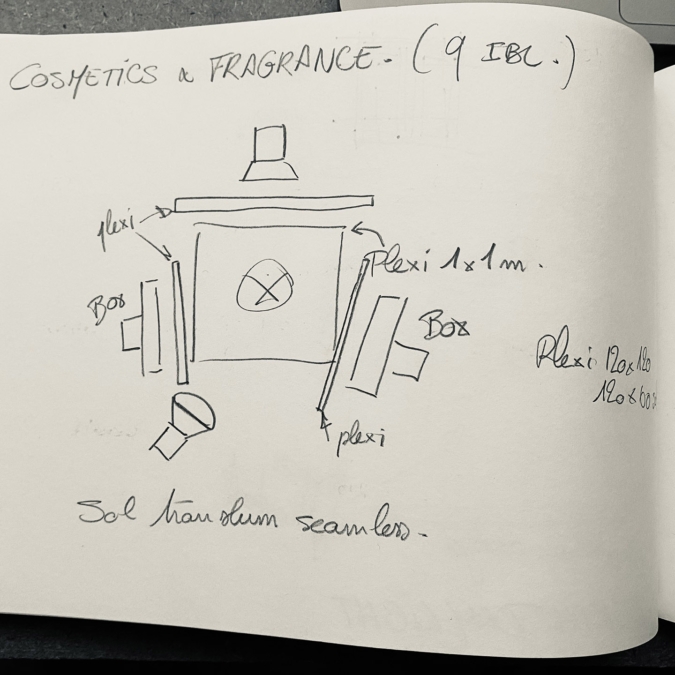 COSMETICS & FRAGRANCE. (9 IBL.)
plexi
Plexi 1x1m.
Box
Box
Plexi 120x120
120x60
plexi
Sol translum seamless.